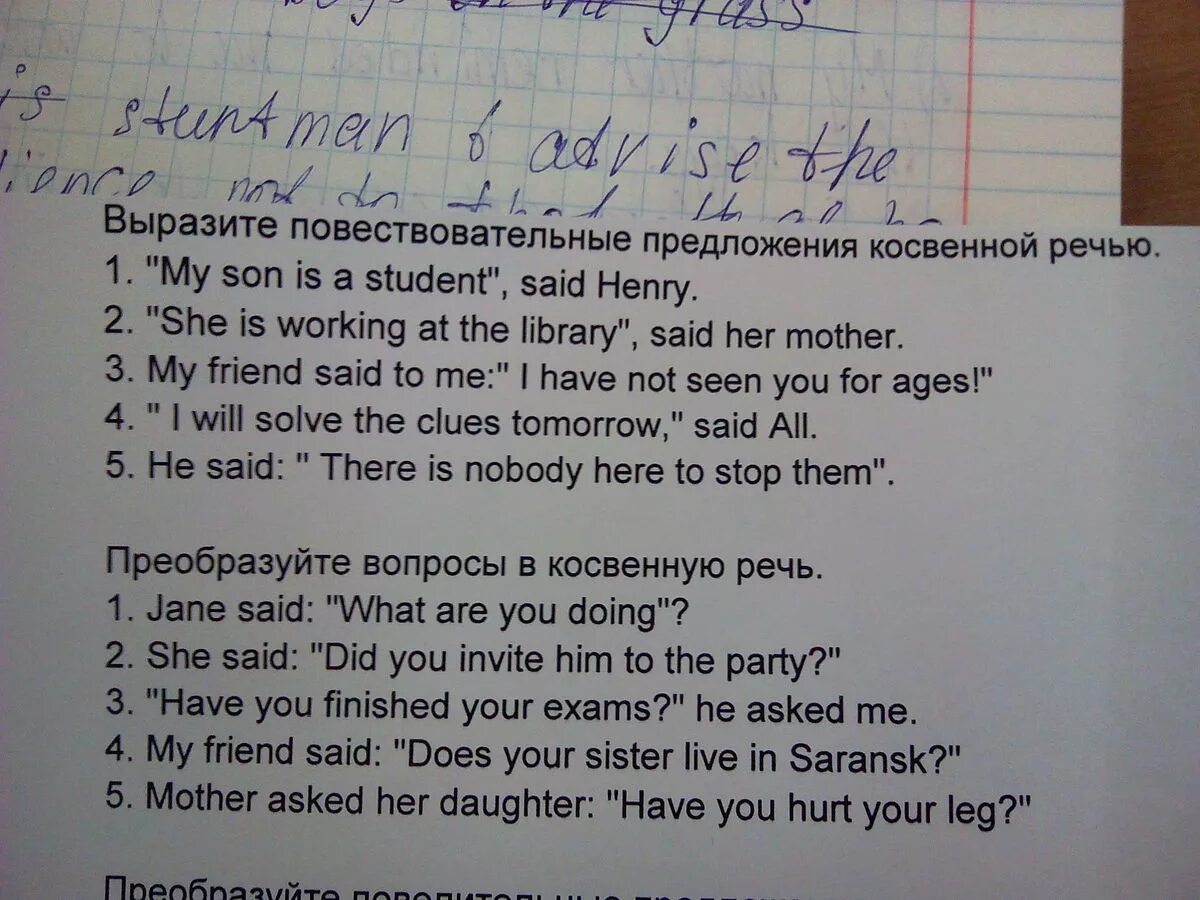 grass
is stuntman 6 advise the
Выразите повествовательные предложения косвенной речью.
1. "My son is a student", said Henry.
2. "She is working at the library", said her mother.
3. My friend said to me:" I have not seen you for ages!"
4. " I will solve the clues tomorrow," said All.
5. He said: " There is nobody here to stop them".
Преобразуйте вопросы в косвенную речь.
1. Jane said: "What are you doing"?
2. She said: "Did you invite him to the party?"
3. "Have you finished your exams?" he asked me.
4. My friend said: "Does your sister live in Saransk?"
5. Mother asked her daughter: "Have you hurt your leg?"
Преобразуйте